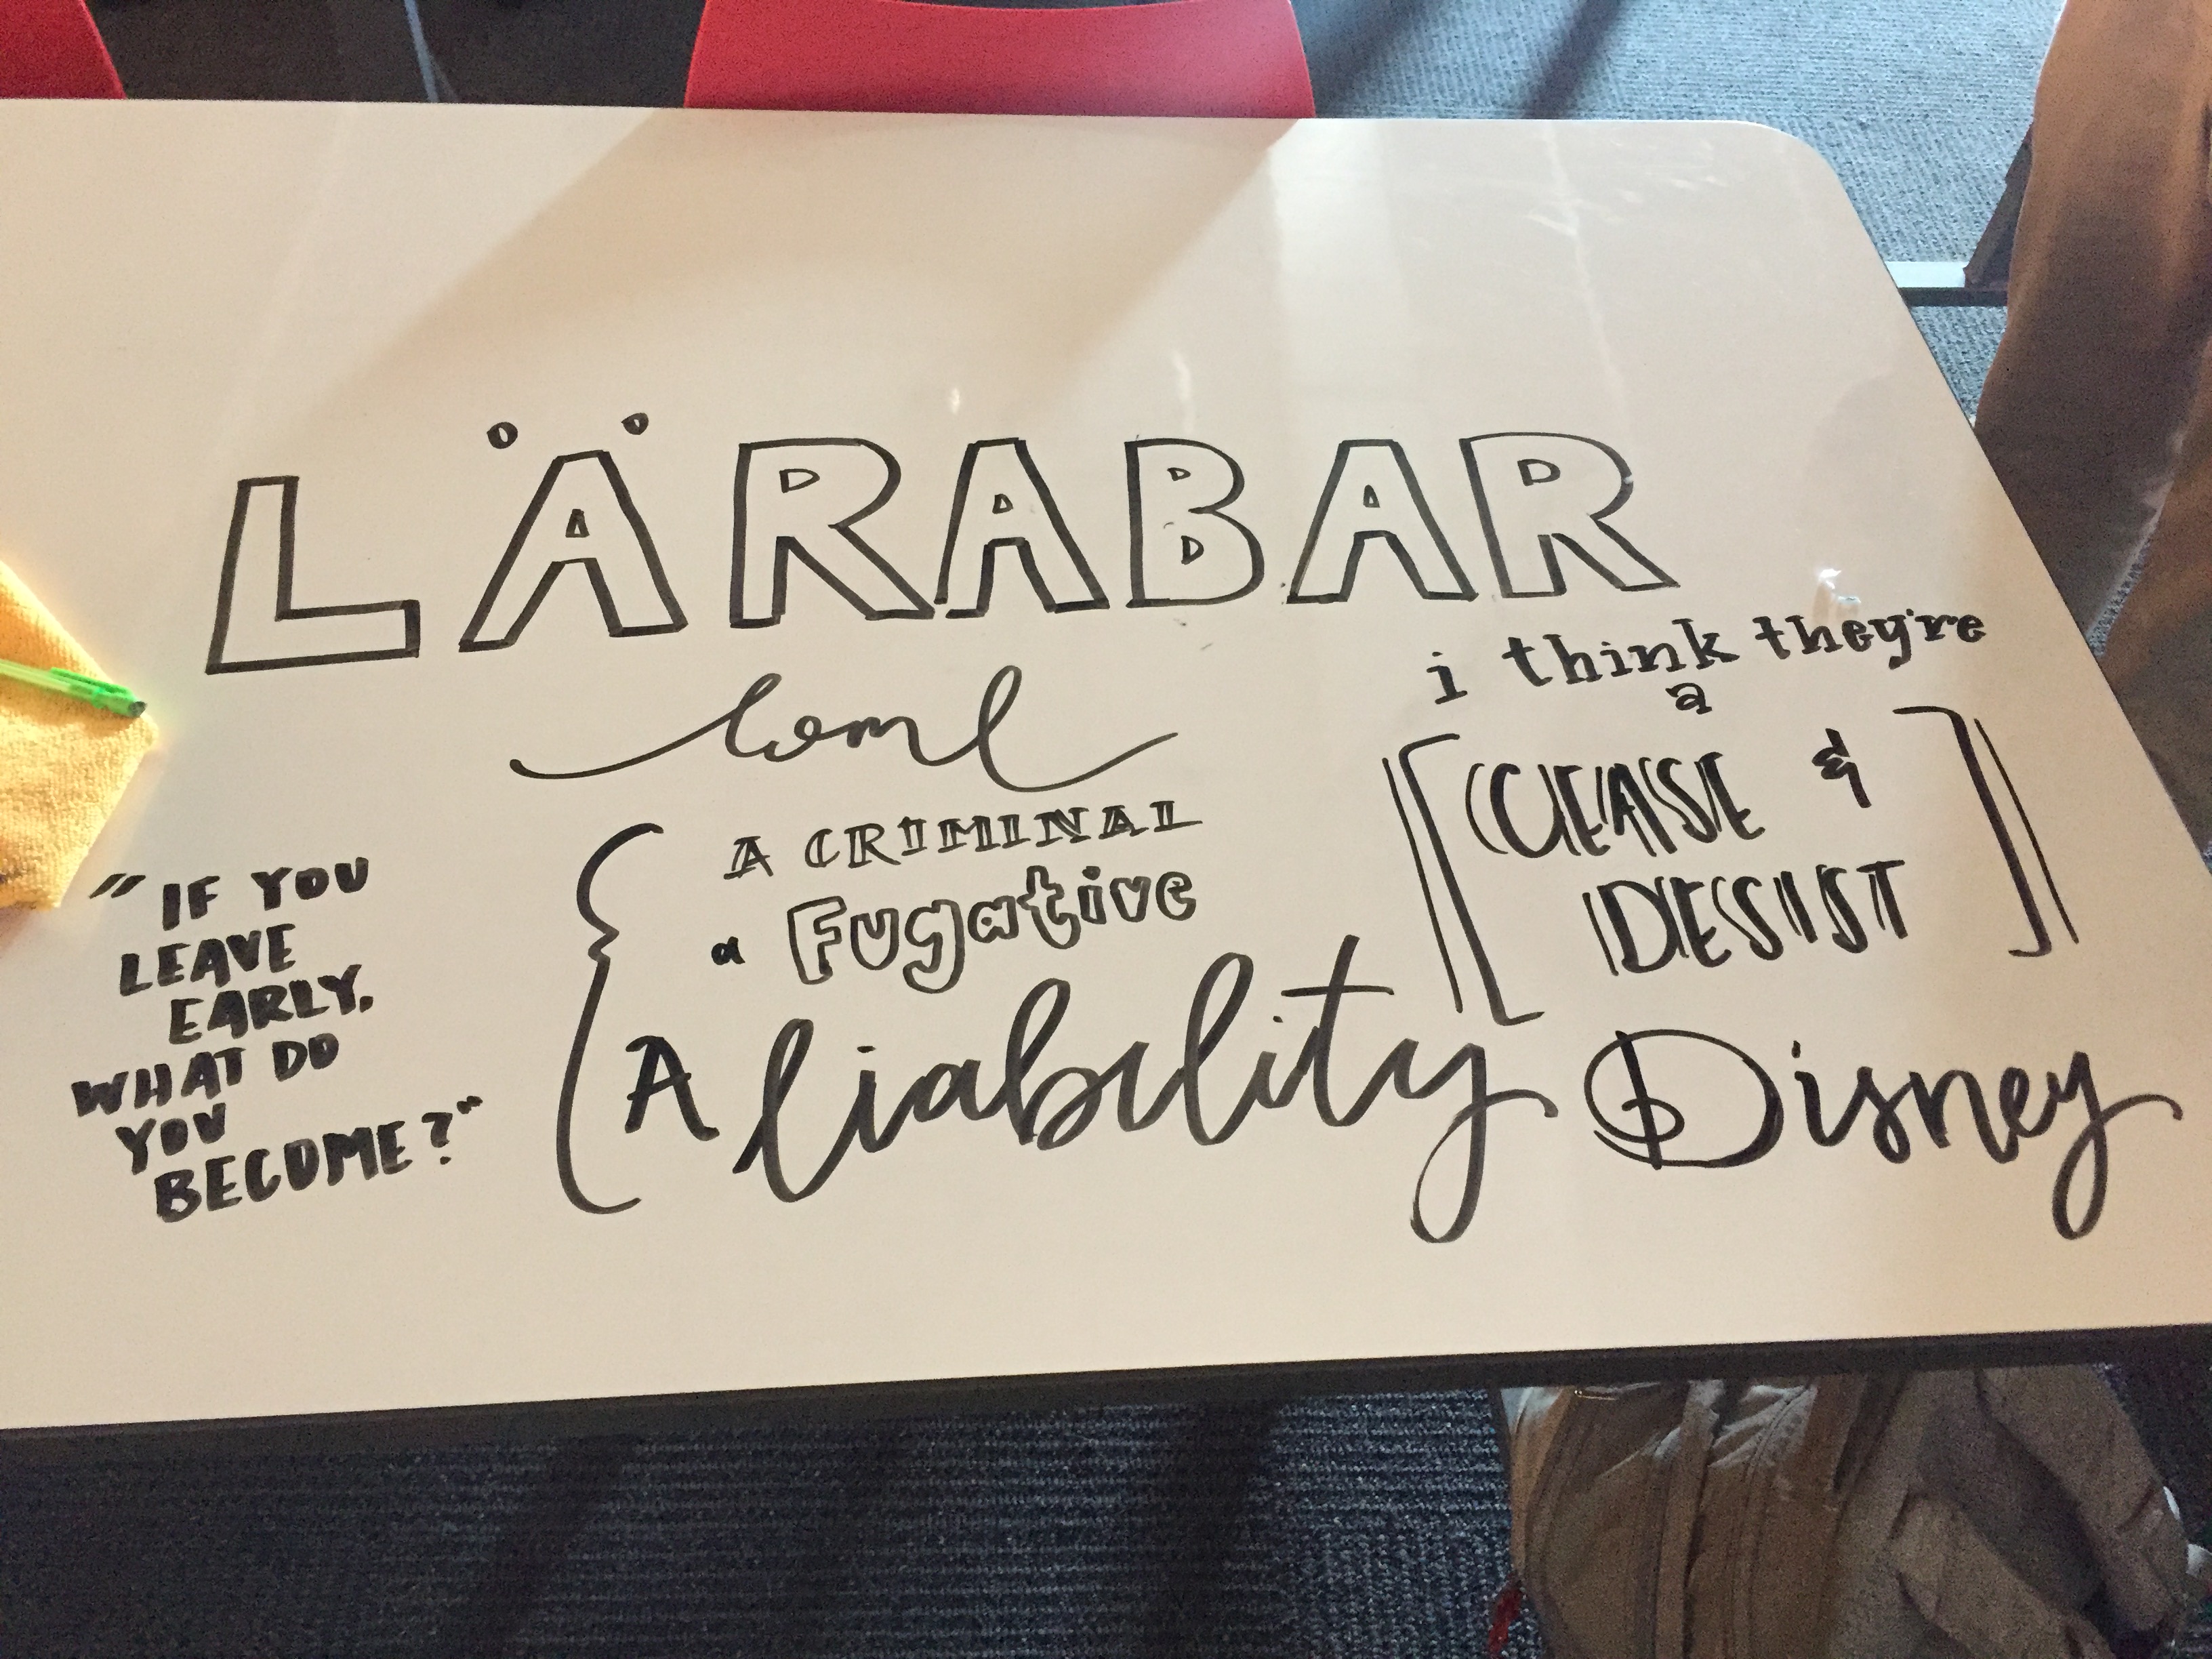 LÄRABAR
"IF YOU
LEAVE
EARLY,
WHAT DO
YOU
BECOME?"
A CRIMINAL
a Fugative
A liability
i think they're
a
CEASE &
DESIST
Disney